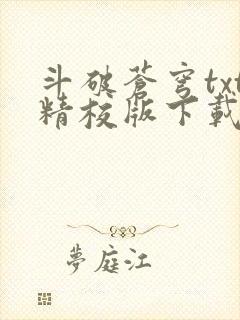 斗破蒼穹txt
精校版下載
夢庭江